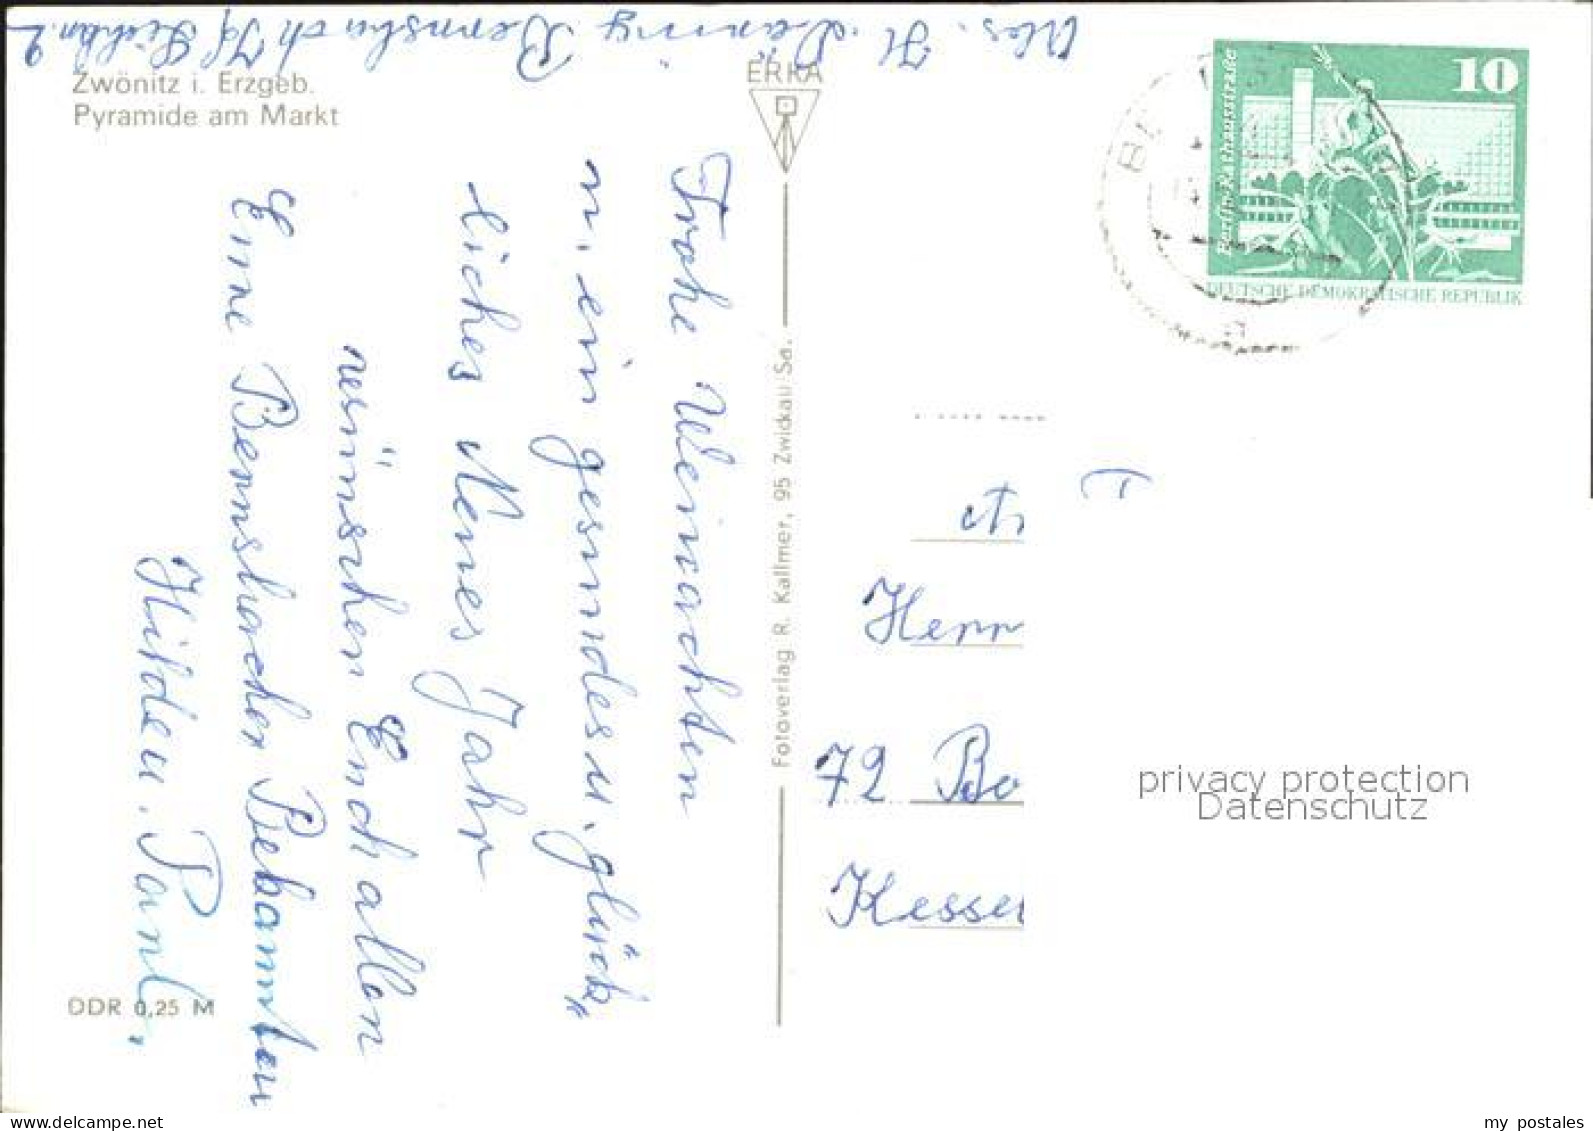 Abs. H.
Zwönitz i. Erzgeb.
Pyramide am Markt
ERKA
Frohe Weinachten
u. ein gesundes u. glück"
liches Neues Jahr
wünschen Euch allen
Eure Bernsbacher Bekannten
Hilde u. Paul.
Fotoverlag R. Kallmer, 95 Zwickau/Sa.
DDR 0,25 M
Berlin-Rathausstraße
10
DEUTSCHE DEMOKRATISCHE REPUBLIK
Herr
72 Bo
Kesse
privacy protection
Datenschutz
www.delcampe.net
my_postales